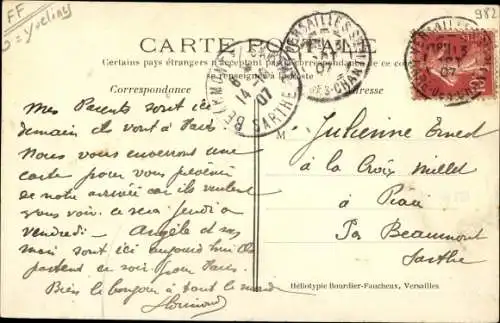 FF
= Yvelines
982
CARTE POSTALE
Certains pays étrangers n'acceptent pas la correspondance de ce côté
se renseigner à la Poste
Correspondance
Adresse
VERSAILLES
07
BEAUMONT
6
14
07
SARTHE
VERSAILLES
13
07
mes Parents sont ici
demain ils vont à Paris
Nous vous enverrons une
carte pour vous prévenir
de notre arrivée car ils veulent
vous voir. ce sera jeudi ou
vendredi - Angèle et son
mari sont ici aujourd'hui ils
partent ce soir pour Paris.
Bien le bonjour à tout le monde
M
Julienne Ernest
à la Croix Millet
à Piacé
Par Beaumont
Sarthe
Héliotypie Bourdier-Faucheux, Versailles